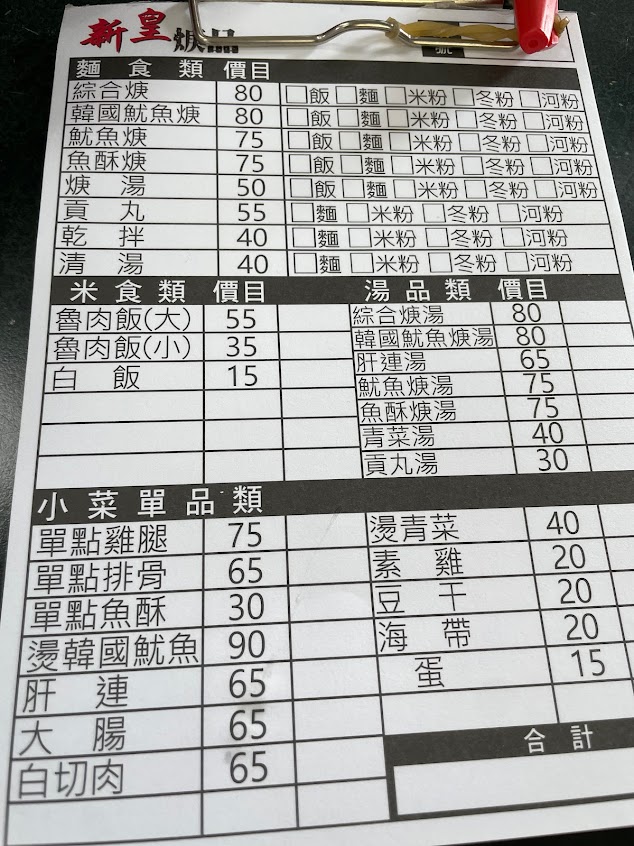 新皇焿品
號
麵食類 價目
綜合焿 80 □飯 □麵 □米粉 □冬粉 □河粉
韓國魷魚焿 80 □飯 □麵 □米粉 □冬粉 □河粉
魷魚焿 75 □飯 □麵 □米粉 □冬粉 □河粉
魚酥焿 75 □飯 □麵 □米粉 □冬粉 □河粉
焿湯 50 □飯 □麵 □米粉 □冬粉 □河粉
貢丸 55 □麵 □米粉 □冬粉 □河粉
乾拌 40 □麵 □米粉 □冬粉 □河粉
清湯 40 □麵 □米粉 □冬粉 □河粉
米食類 價目
魯肉飯(大) 55
魯肉飯(小) 35
白飯 15
湯品類 價目
綜合焿湯 80
韓國魷魚焿湯 80
肝連湯 65
魷魚焿湯 75
魚酥焿湯 75
青菜湯 40
貢丸湯 30
小菜單品類
單點雞腿 75
單點排骨 65
單點魚酥 30
燙韓國魷魚 90
肝連 65
大腸 65
白切肉 65
燙青菜 40
素雞 20
豆干 20
海帶 20
蛋 15
合計